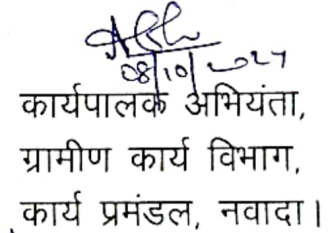 08/10/2024
कार्यपालक अभियंता,
ग्रामीण कार्य विभाग,
कार्य प्रमंडल, नवादा।